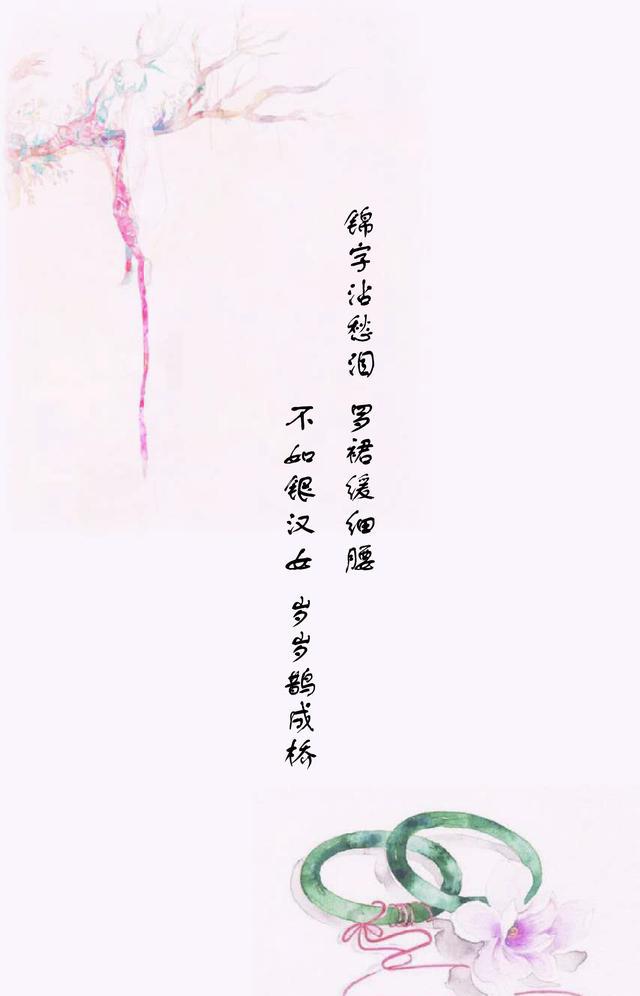 锦字沾愁泪 罗裙缓细腰
不如银汉女 岁岁鹊成桥